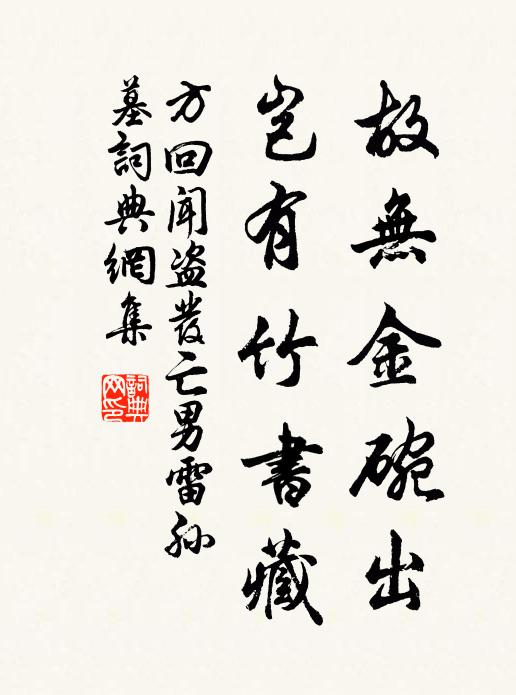 故無金碗出
豈有竹書藏
方回聞盗發亡男雷孙
墓詞典網集
詞典
网印